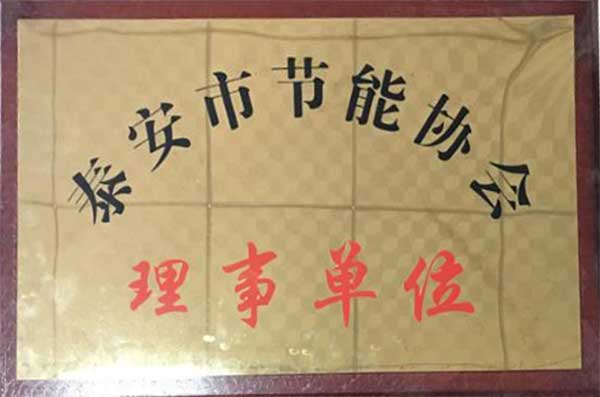 泰安市节能协会
理事单位